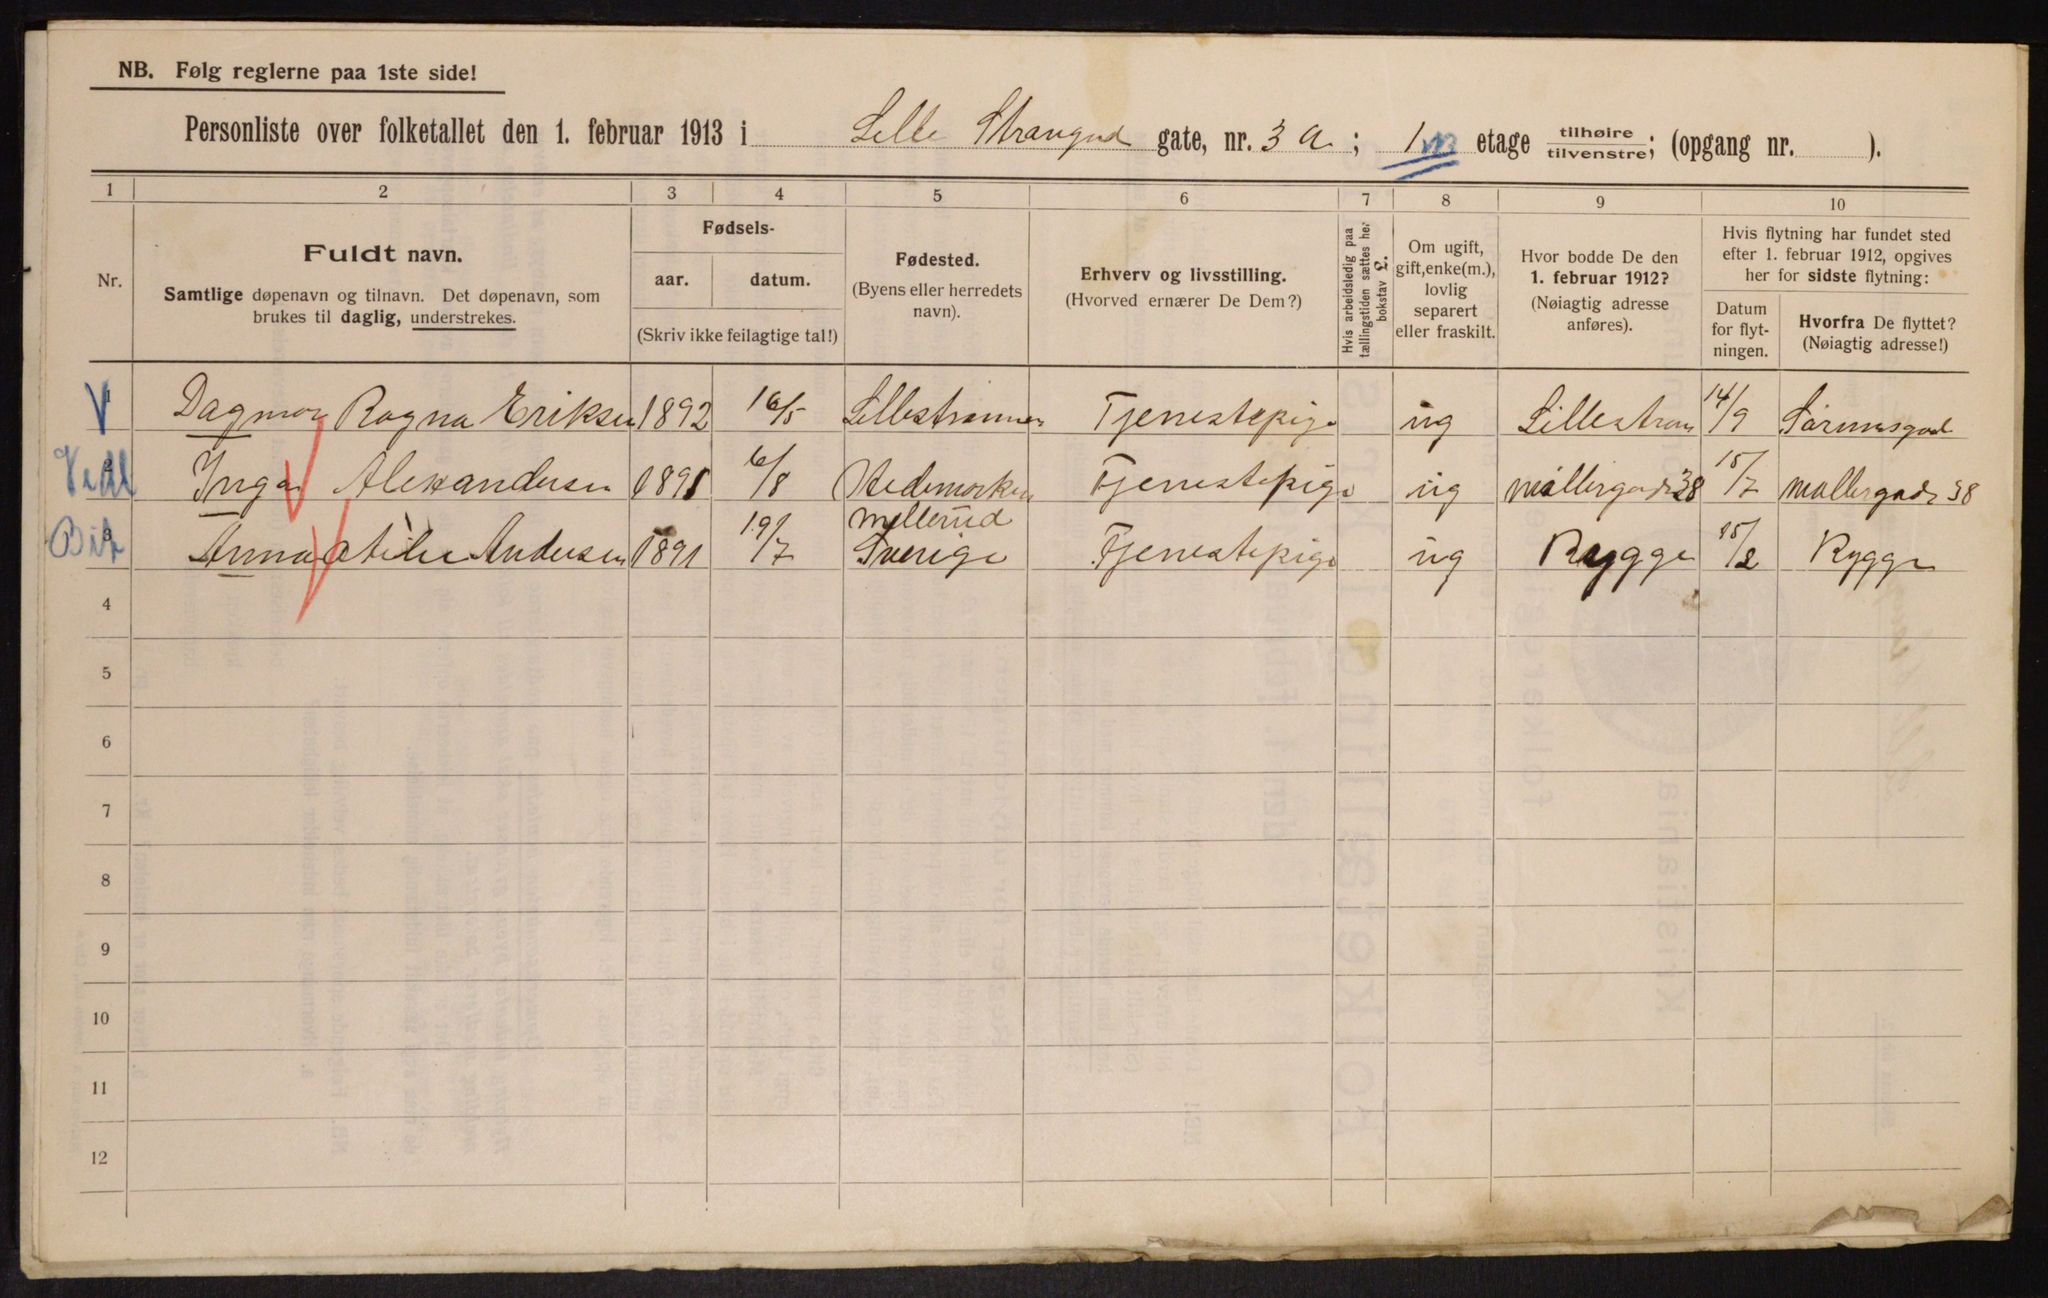 NB. Følg reglerne paa 1ste side!
Personliste over folketallet den 1. februar 1913 i Lille Strangad gate, nr. 3 a ; 1 etage tilhøire tilvenstre; (opgang nr. ).
1 2 3 4 5 6 7 8 9 10
Nr.
Fuldt navn.
Samtlige døpenavn og tilnavn. Det døpenavn, som
brukes til daglig, understrekes.
Fødsels-
aar. datum.
(Skriv ikke feilagtige tal!)
Fødested.
(Byens eller herredets
navn).
Erhverv og livsstilling.
(Hvorved ernærer De Dem?)
Hvis arbeidsledig paa
tællingstiden sættes her
bokstav £.
Om ugift,
gift, enke(m.),
lovlig
separert
eller fraskilt.
Hvor bodde De den
1. februar 1912?
(Nøiagtig adresse
anføres).
Hvis flytning har fundet sted
efter 1. februar 1912, opgives
her for sidste flytning:
Datum
for flyt-
ningen.
Hvorfra De flyttet?
(Nøiagtig adresse!)
V 1 Dagmar Ragna Eriksen 1892 16/5 Lillestrømmen Tjenestepige ug Lillestrøm 14/9 Sørumsgad
2 Inga Alexandersen 1891 6/8 Hedemarken Tjenestepige ug Møllergade 38 15/7 Møllergade 38
3 Anna Andersen 1891 19/7 Mellerud
Sverige Tjenestepige ug Rygge 15/2 Rygge
4
5
6
7
8
9
10
11
12